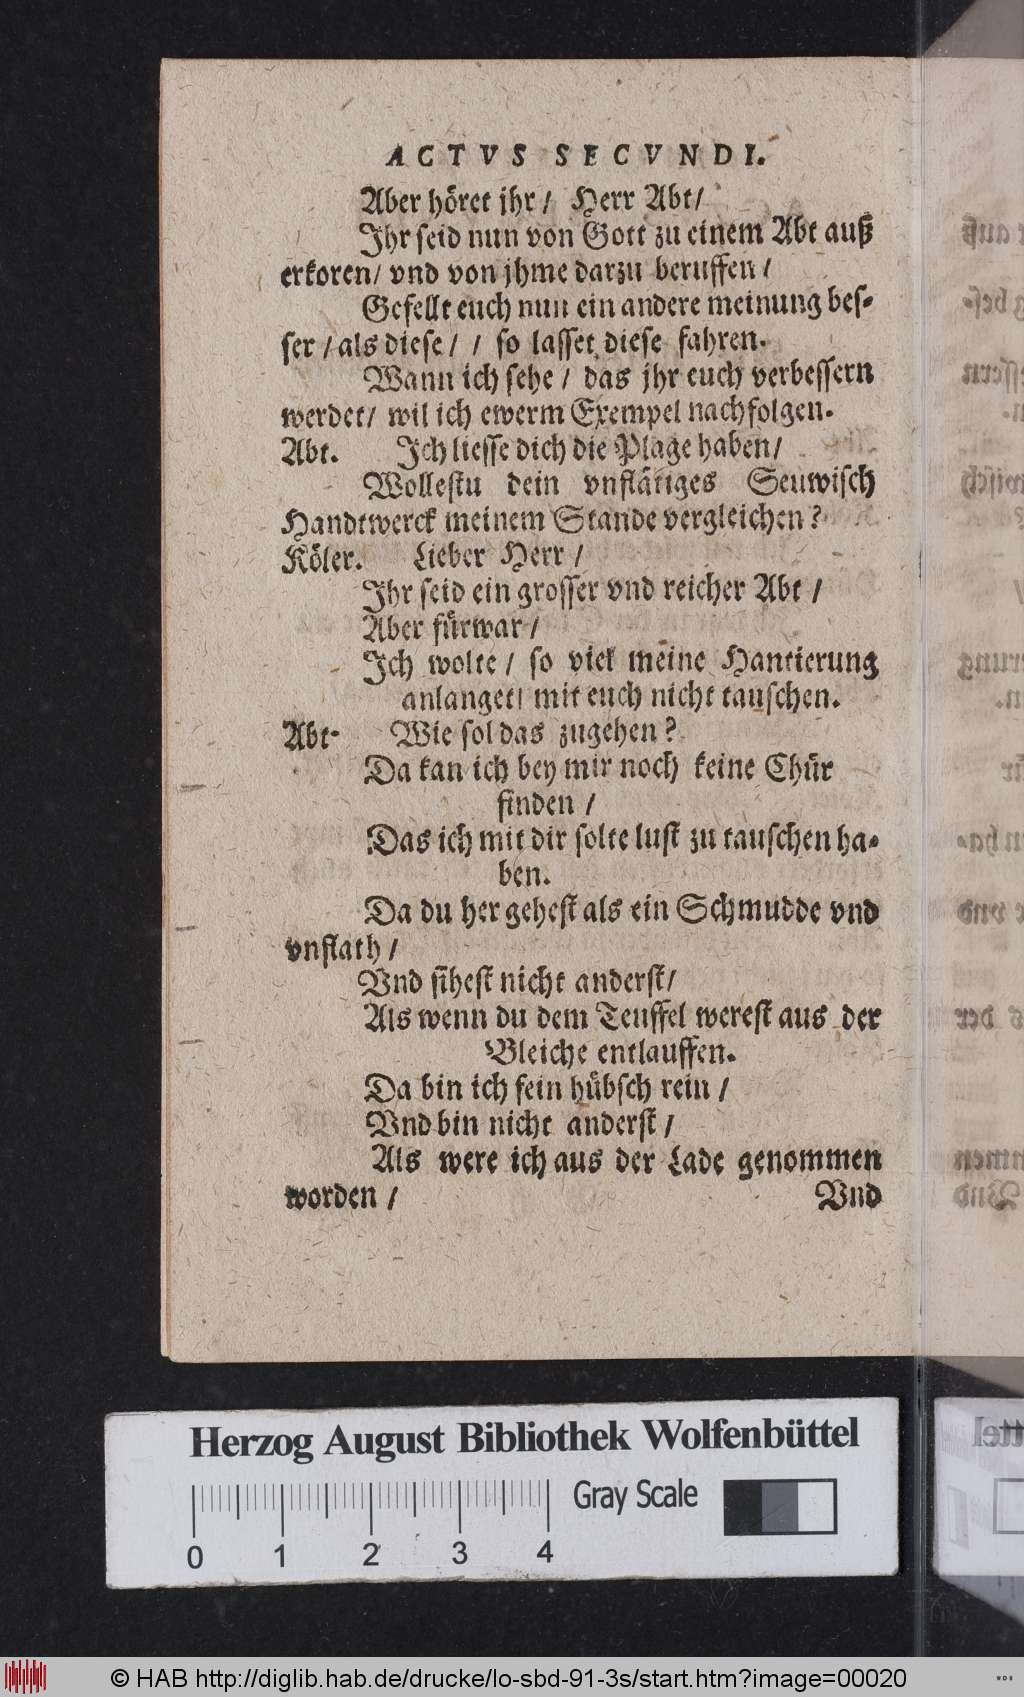 ACTVS SECVNDI.
Aber höret jhr / Herr Abt/
Jhr seid nun von Gott zu einem Abt auß
erkoren/ vnd von jhme darzu beruffen /
Gefellt euch nun ein andere meinung bes-
ser / als diese / / so lasset diese fahren.
Wann ich sehe / das jhr euch verbessern
werdet/ wil ich ewerm Exempel nachfolgen.
Abt. Ich liesse dich die Plage haben/
Wollestu dein vnflätiges Seuwisch
Handtwerck meinem Stande vergleichen?
Köler. Lieber Herr /
Jhr seid ein grosser vnd reicher Abt /
Aber fürwar /
Ich wolte / so viel meine Hantierung
anlanget/ mit euch nicht tauschen.
Abt. Wie sol das zugehen?
Da kan ich bey mir noch keine Chür
finden /
Das ich mit dir solte lust zu tauschen ha-
ben.
Da du her gehest als ein Schmudde vnd
vnflath /
Vnd sihest nicht anderst/
Als wenn du dem Teuffel werest aus der
Bleiche entlauffen.
Da bin ich fein hübsch rein /
Vnd bin nicht anderst /
Als were ich aus der Lade genommen
worden / Vnd
Herzog August Bibliothek Wolfenbüttel
Gray Scale
0 1 2 3 4
© HAB http://diglib.hab.de/drucke/lo-sbd-91-3s/start.htm?image=00020